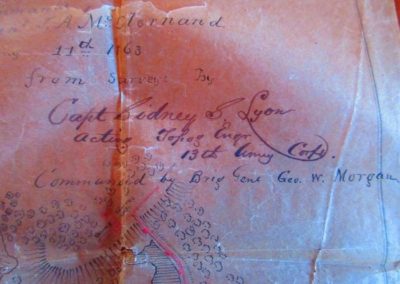 A. McClernand
11th 1863
from Surveys By
Capt Sidney S. Lyon
acting Topog Engr
13th Army Corps.
Commanded by Brig Genl Geo. W. Morgan